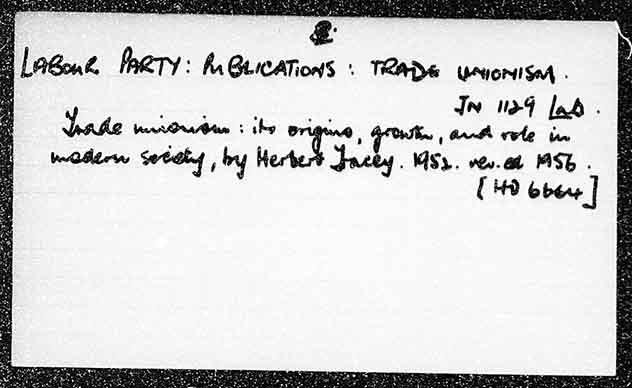 LABOUR PARTY: PUBLICATIONS: TRADE UNIONISM.
JN 1129 Lab.
Trade unionism: its origins, growth, and role in
modern society, by Herbert Tracey. 1952. rev. ed 1956.
[HD 6664]